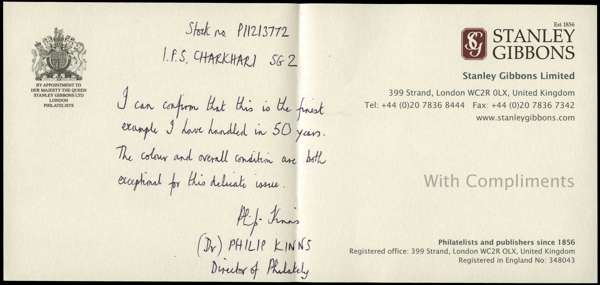 Stock no P11213772
I.P.S, CHARKHARI SG2
I can confirm that this is the finest
example I have handled in 50 years.
The colour and overall condition are both
exceptional for this delicate issue.
Philip Kinns
(Dr) PHILIP KINNS
Director of Philately
BY APPOINTMENT TO
HER MAJESTY THE QUEEN
STANLEY GIBBONS LTD
LONDON
PHILATELISTS
Est 1856
SG
STANLEY
GIBBONS
Stanley Gibbons Limited
399 Strand, London WC2R 0LX, United Kingdom
Tel: +44 (0)20 7836 8444 Fax: +44 (0)20 7836 7342
www.stanleygibbons.com
With Compliments
Philatelists and publishers since 1856
Registered office: 399 Strand, London WC2R 0LX, United Kingdom
Registered in England No: 348043